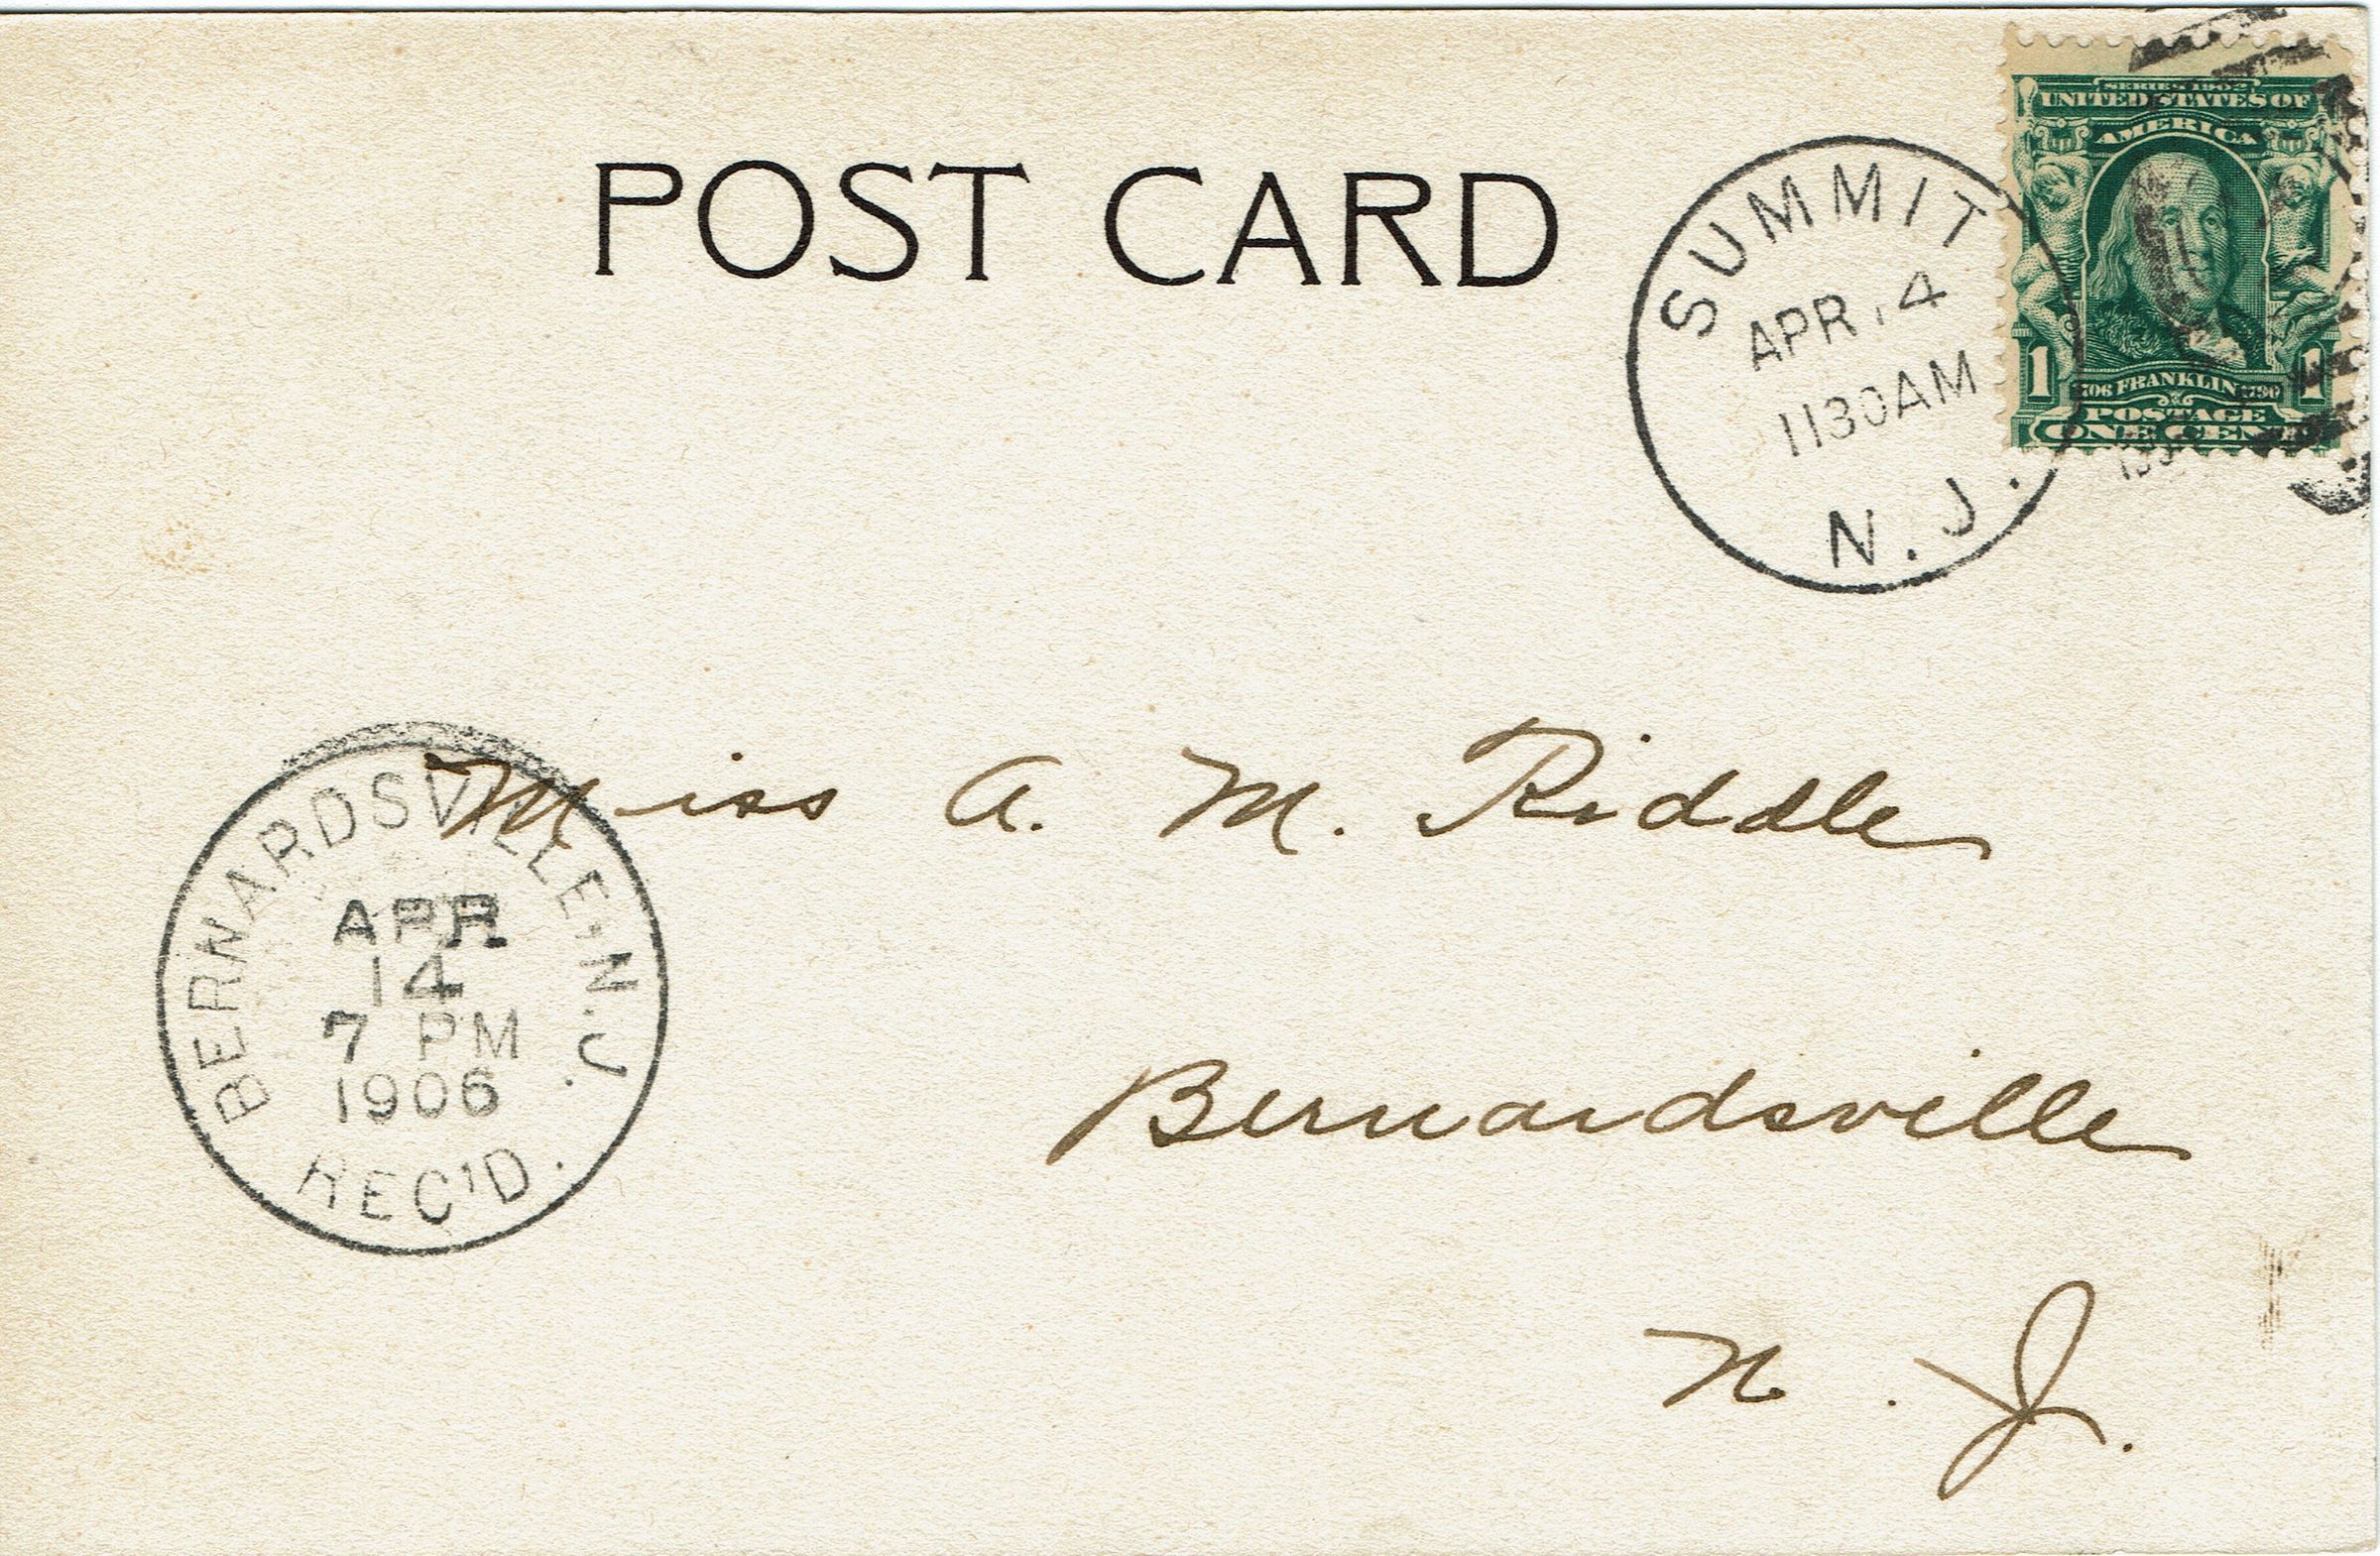 POST CARD
SERIES 1902
UNITED STATES OF
AMERICA
1 1
FRANKLIN
POSTAGE
ONE CENT
SUMMIT
APR 14
1130AM
N. J.
Miss A. M. Riddle
Bernardsville
N. J.
BERNARDSVILLE. N. J.
APR
14
7 PM
1906
REC'D.